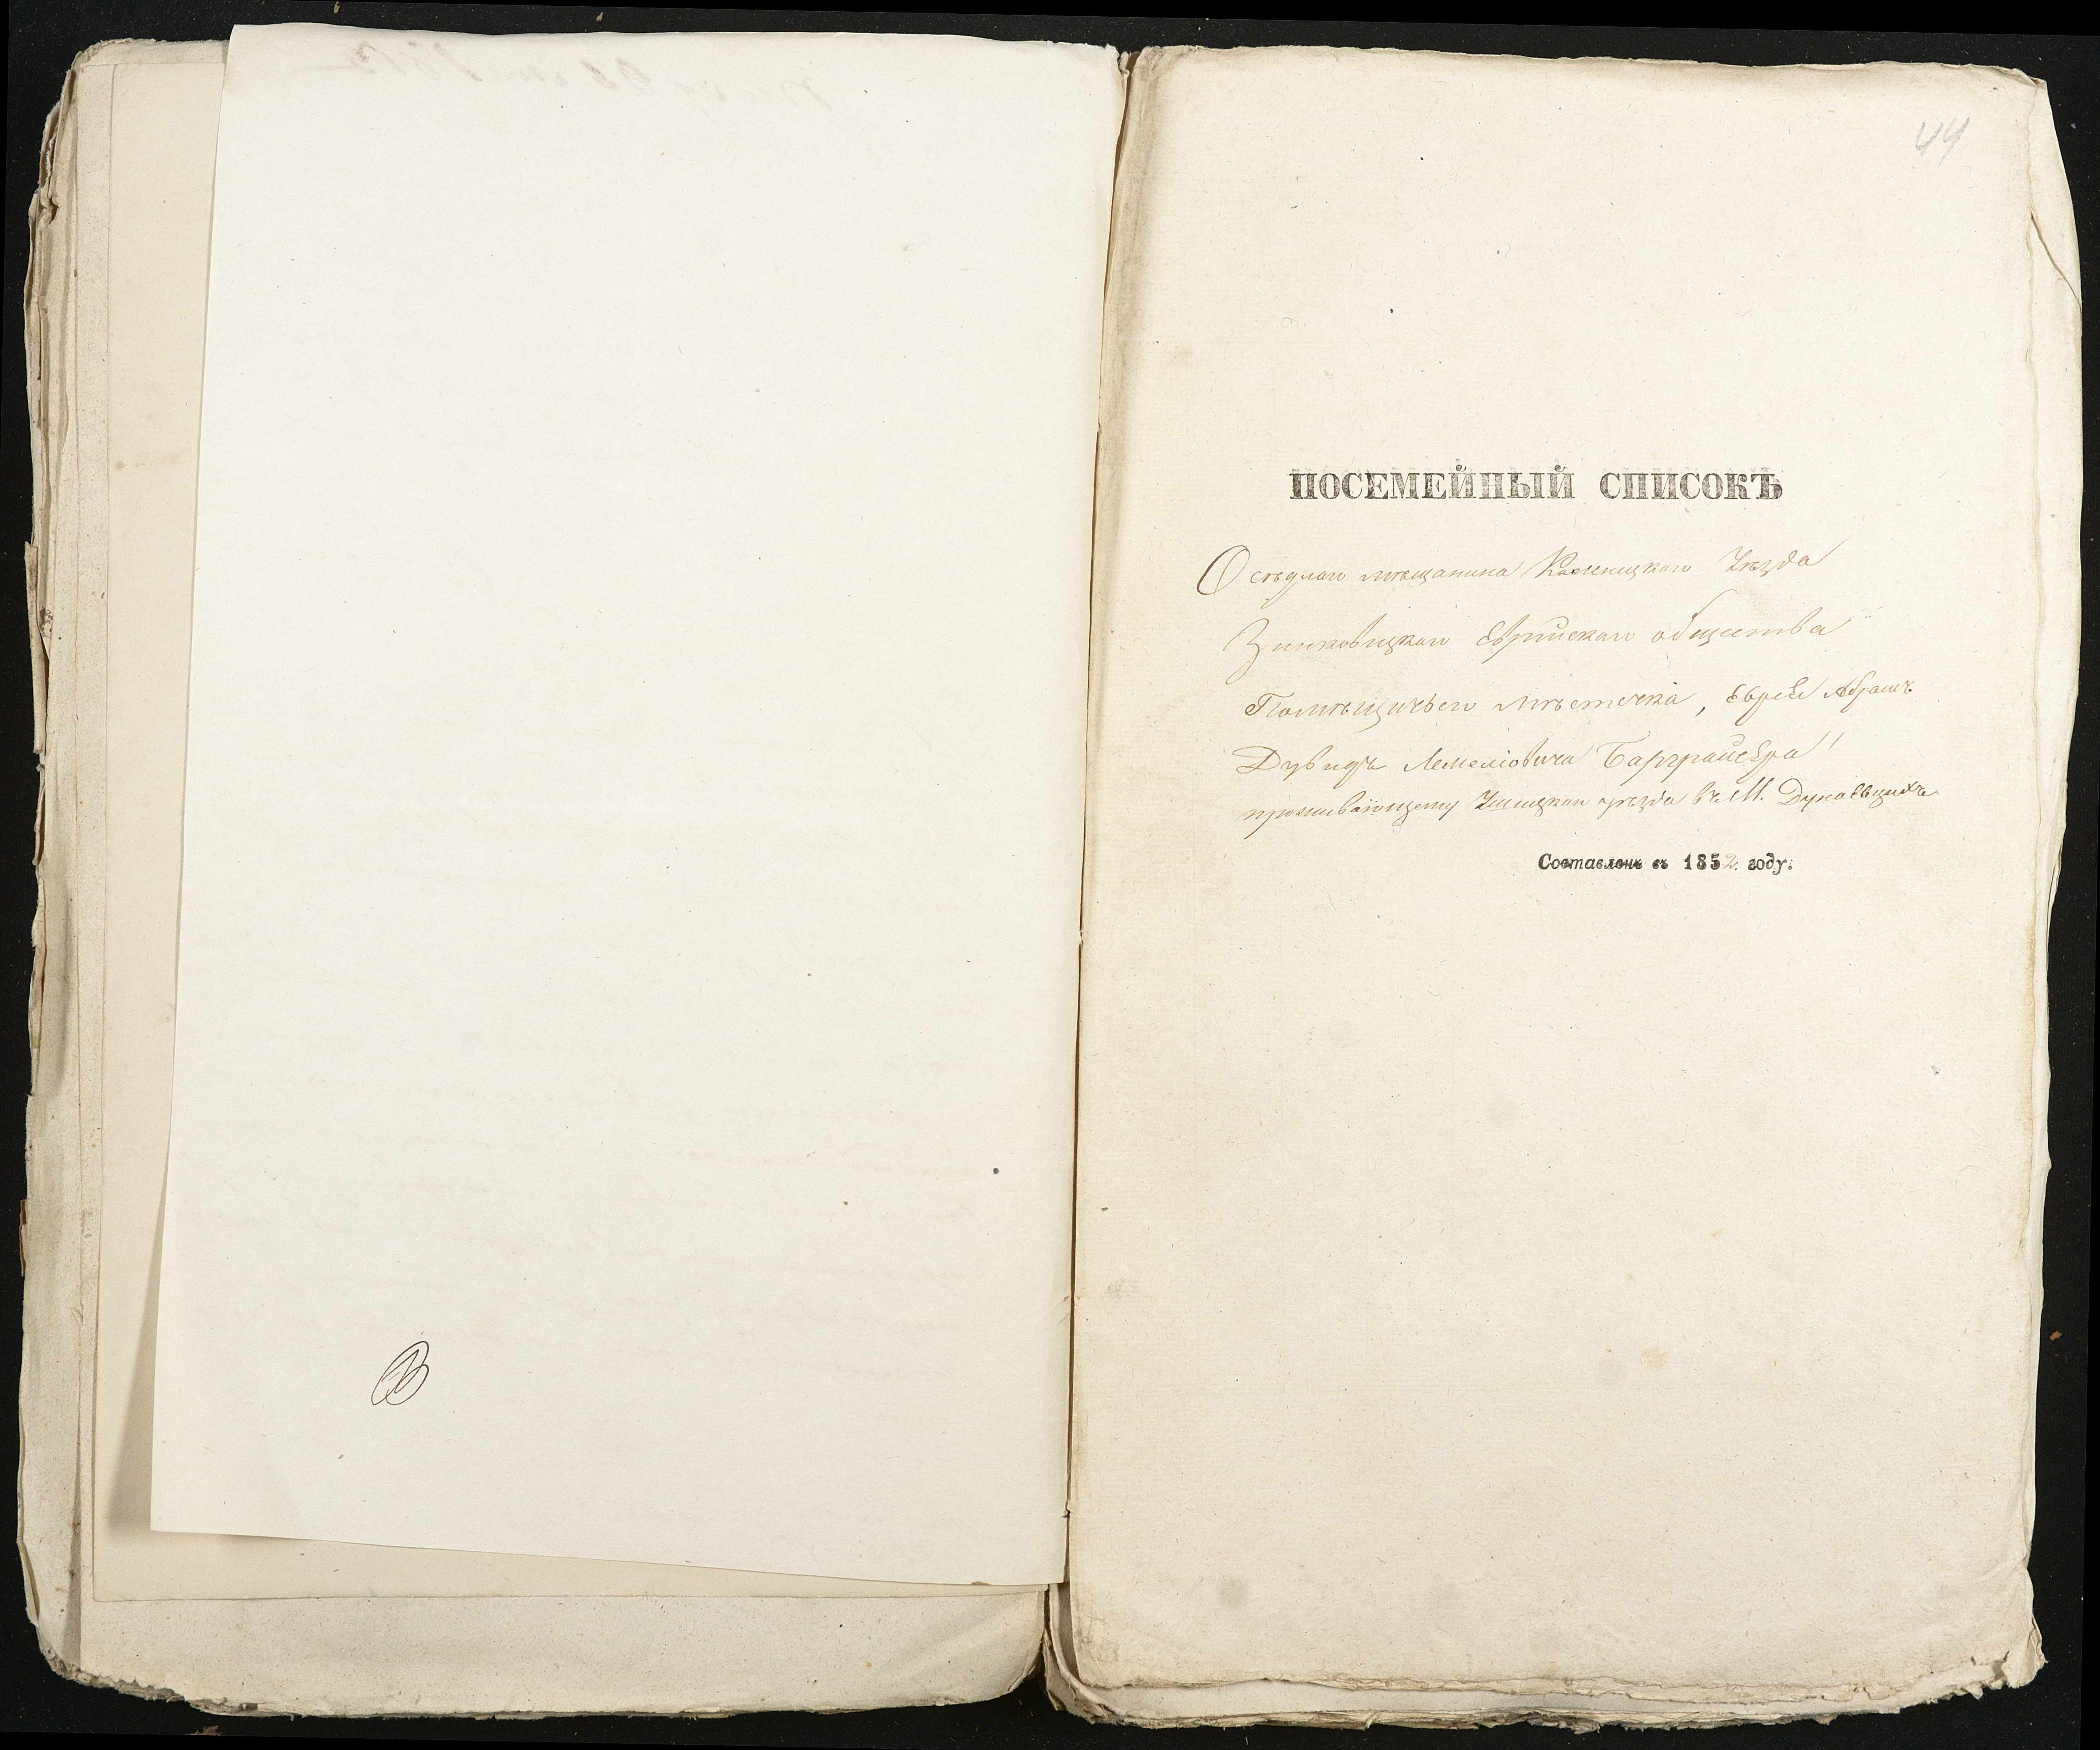 44
ПОСЕМЕЙНЫЙ СПИСОКЪ
Осѣдлаго мѣщанина Каменецкаго Уѣзда
Зинковицкаго Еврейскаго общества
Помѣщичьего мѣстечка, Еврея Абрамъ
Дувидъ Лемеліовича
проживающему Ушицкаго уѣзда въ М. Дунаевцахъ
Составленъ въ 1852 году.